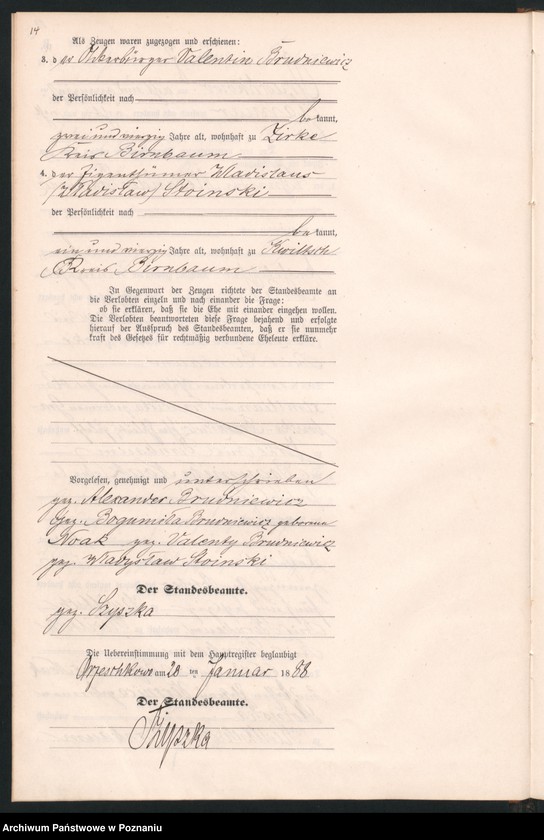 14
Als Zeugen waren zugezogen und erschienen:
3. der Ackerbürger Valentin Brudniewicz
der Persönlichkeit nach
bekannt,
zwei und vierzig Jahre alt, wohnhaft zu Zirke
Kreis Birnbaum
4. der Eigenthümer Wladislaus
(Wladislaw) Stoinski
der Persönlichkeit nach
bekannt,
ein und vierzig Jahre alt, wohnhaft zu Kwiltsch
Kreis Birnbaum
In Gegenwart der Zeugen richtete der Standesbeamte an
die Verlobten einzeln und nach einander die Frage:
ob sie erklären, daß sie die Ehe mit einander eingehen wollen.
Die Verlobten beantworteten diese Frage bejahend und erfolgte
hierauf der Ausspruch des Standesbeamten, daß er sie nunmehr
kraft des Gesetzes für rechtmäßig verbundene Eheleute erkläre.
Vorgelesen, genehmigt und unterschrieben
gez. Alexander Brudniewicz
gez. Bogumiła Brudniewicz geborene
Noak gez. Valenty Brudniewicz
gez. Władysław Stoinski
Der Standesbeamte.
gez. Szyszka
Die Uebereinstimmung mit dem Hauptregister beglaubigt
Orzeschkowo am 20 ten Januar 1888
Der Standesbeamte.
Szyszka
Archiwum Państwowe w Poznaniu